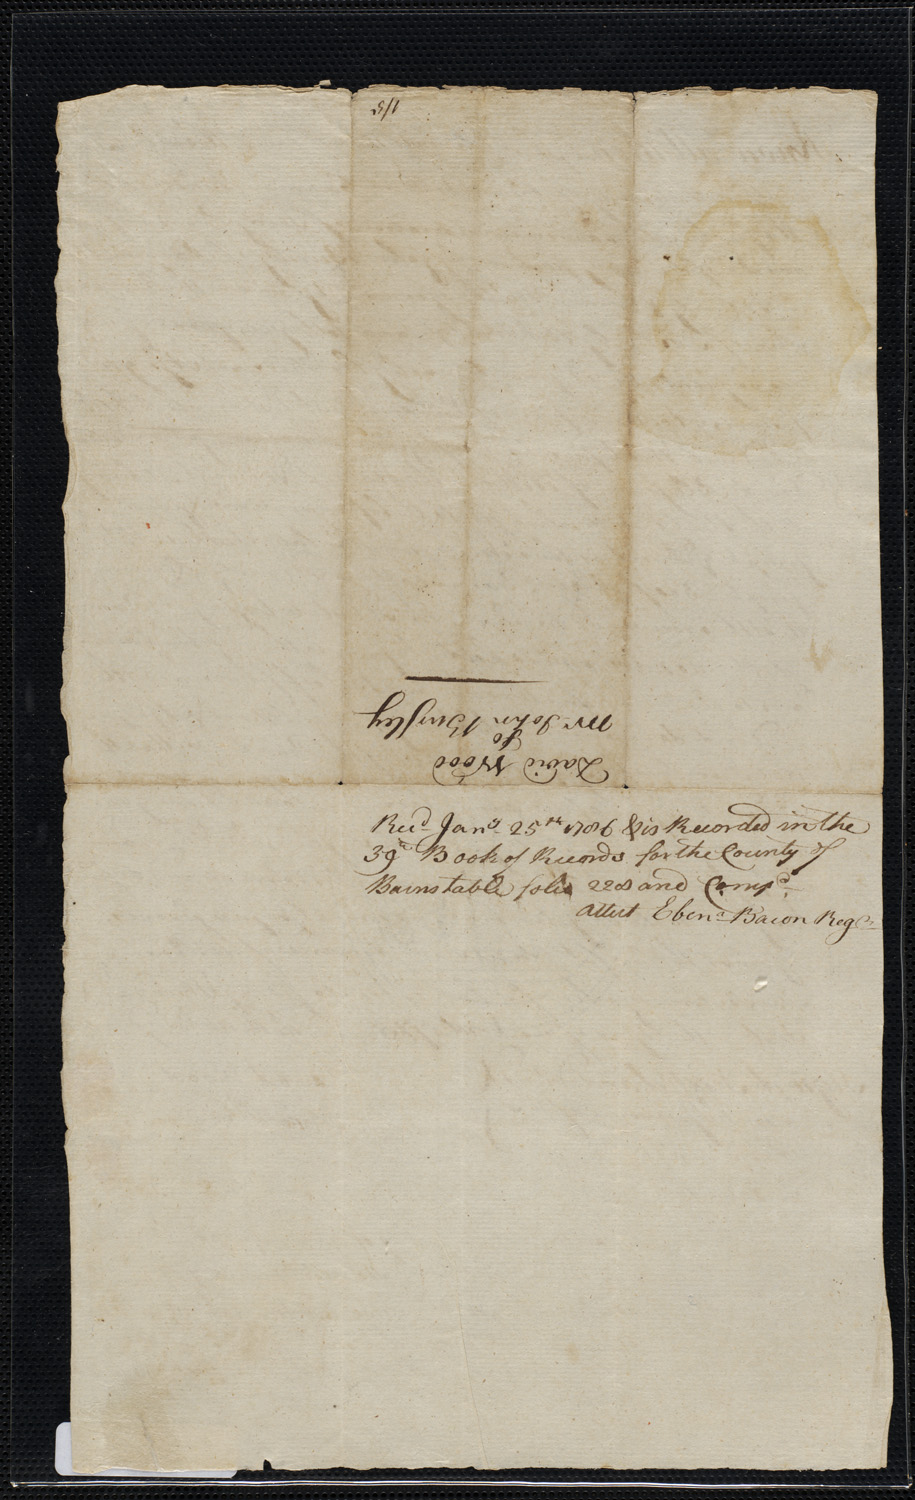 1/3
David Wood
to
Mr John Bursley
Recd Jany 25th 1786 & is Recorded in the
39th Book of Records for the County of
Barnstable folio 228 and Compd
attest Ebenr Bacon Regr